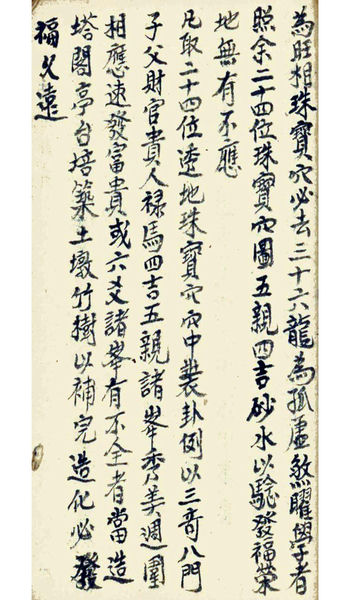 為旺相珠寶穴必去三十六龍為孤虛煞曜學者
照余二十四位珠寶穴圖五親四吉砂水以驗發福榮
地無有不應
凡取二十四位透地珠寶穴穴中裝卦例以三奇八門
子父財官貴人祿馬四吉五親諸峯秀美週圍
相應速發富貴或六爻諸峯有不全者當造
塔閣亭台培築土墩竹樹以補完造化必發
福久遠